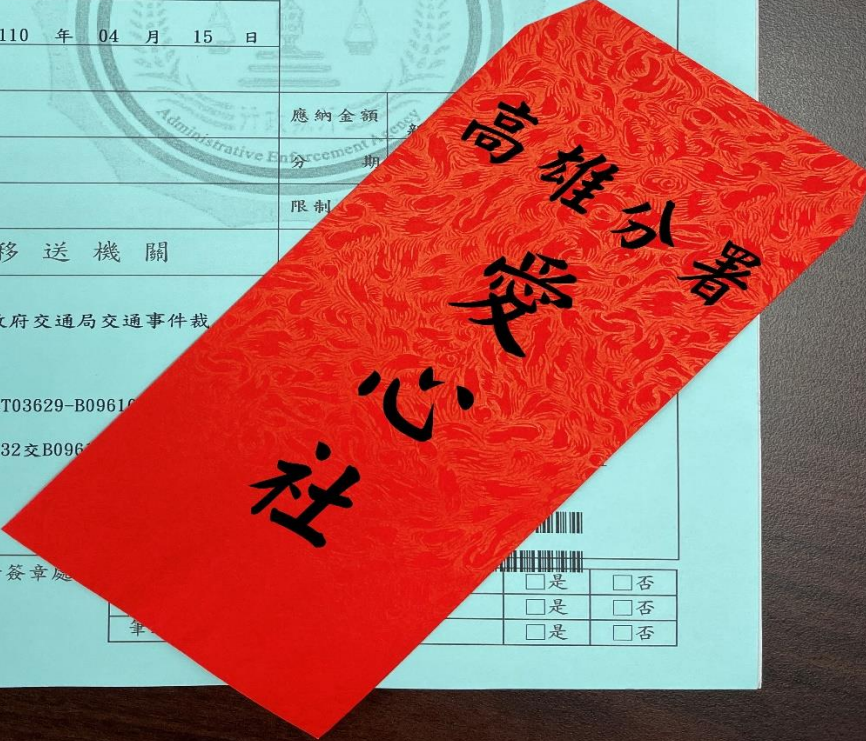 110 年 04 月 15 日
Administrative Enforcement Agency
應納金額
分期
限制
移送機關
府交通局交通事件裁
T03629-B0961
32交B096
簽章處
□是 □否
□是 □否
□是 □否
高雄分署
愛心社